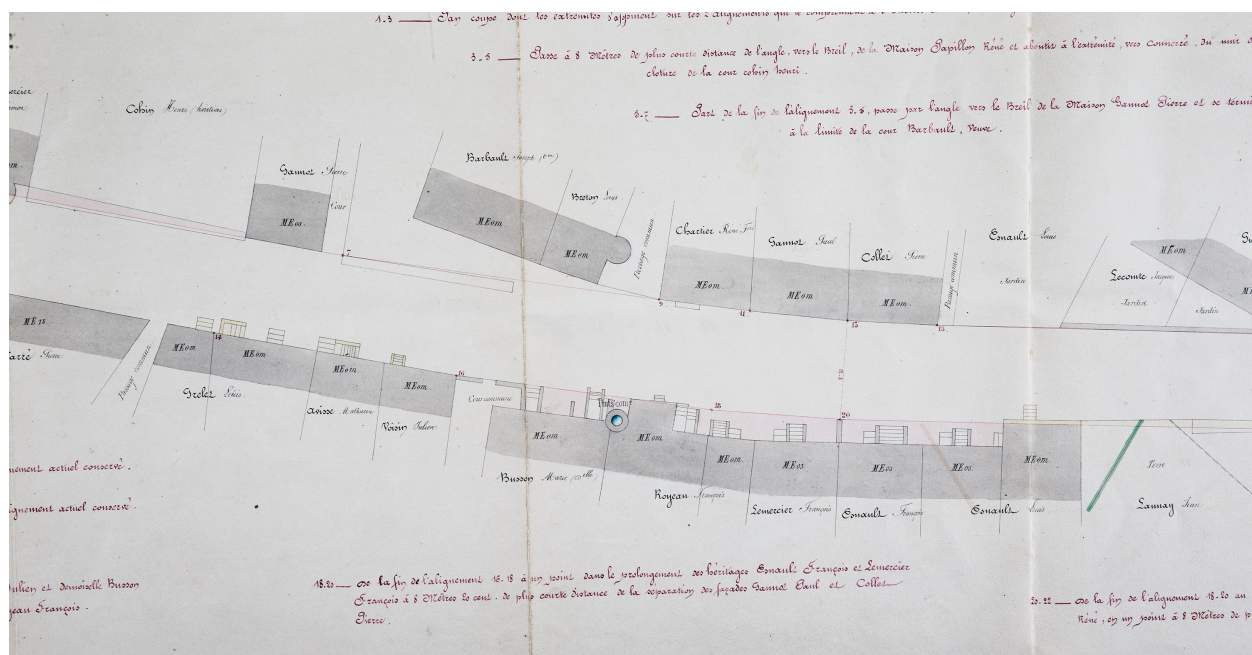 1.3 — Pan coupé dont les extrémités s'appuient sur les 2 alignements qui le comprennent à
3-5 — Passe à 8 Mètres de plus courte distance de l'angle, vers le Breil, de la Maison Papillon Réné et aboutis à l'extrémité, vers Connerré, du mur
cloture de la cour cohin henri.
5-7 — Part de la fin de l'alignement 3.5, passe par l'angle vers le Breil de la Maison Gannot Pierre et se
à la limité de la cour Barbault, Veuve.
Cohin Henri (héritiers)
Gannot Pierre
Cour
Barbault Joseph
Breton Louis
Passage commun
Chartier Réné
Gannot Paul
Collet Pierre
Passage commun
Esnault Louis
Jardin
Lecomte Jacques
Jardin
Jardin
MEos.
MEom
MEom
MEom.
MEom.
MEom.
MEom
7
9
11
13
15
ME1s
Pierre
Passage commun
MEom
14
MEom
MEom
MEom
16
Cour commune
Grelet Louis
Avisse Mathurin
Voisin Julien
MEom
Puits com
MEom
18
MEom.
MEos.
20
MEos.
MEos.
MEom
Busson Marie
Royeau François
Lemercier François
Esnault François
Esnault Louis
Terre
Lannay Jean
actuel conservé.
actuel conservé.
Julien et demoiselle Busson
François.
18.20 — De la fin de l'alignement 16.18 à un point dans le prolongement des héritages Esnault François et Lemercier
François à 8 Mètres 20 cent. de plus courte distance de la séparation des façades Gannot Paul et Collet
Pierre.
20-22 — De la fin de l'alignement 18-20 au
Réné, en un point à 8 Mètres de